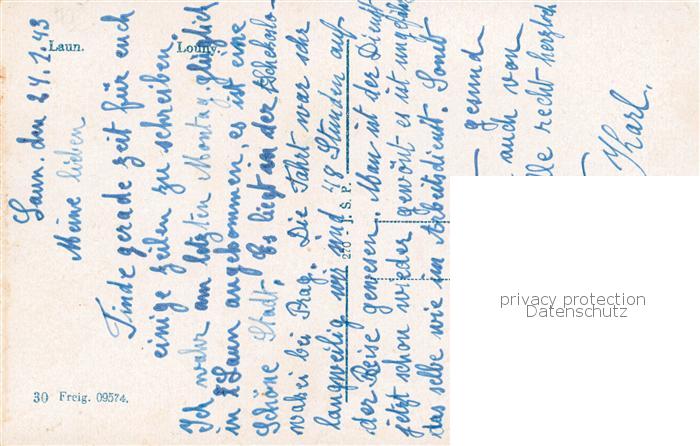 Laun. Louny.
Laun. den 24.1.43
Meine lieben
Finde gerade zeit für euch
einige zeilen zu schreiben.
Ich wahr am letzten Montag glüglich
in Laun angekommen, es ist eine
schöne Stadt. Es liegt an der tschecholo-
wakei bei Prag. Die Fahrt war sehr
langweilig wir sind 48 Stunden auf
der Reise gewesen. Man ist der Dienst
jetzt schon wieder gewönt es ist ungefähr
das selbe wie im Arbeitsdienst. Sonst
gesund
auch von
alle recht herzlich
Karl.
270 - J. S. P.
30 Freig. 09574.
privacy protection
Datenschutz